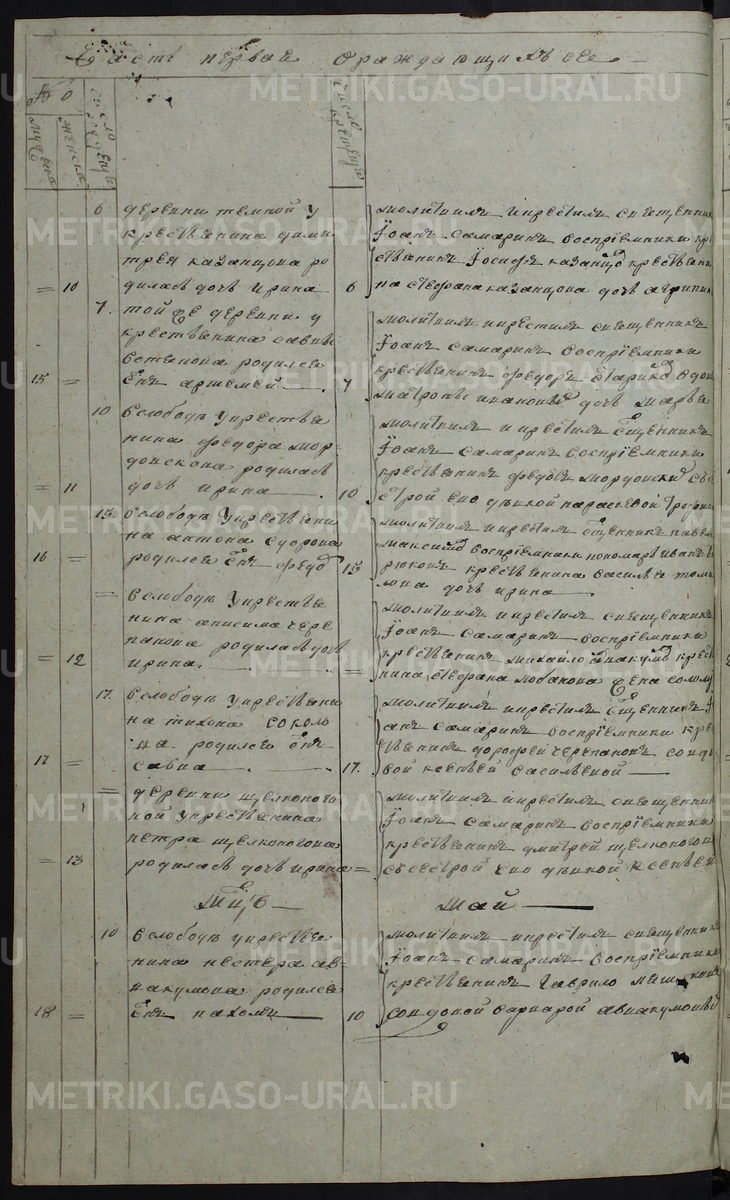 Часть первая ораждающихъ се
№ о
мужеска
женска
число рожден
число крещен
6 деревни темной у
крестьянина дими
трея казанцова ро
= 10 дилась дочь ирина
6 молитвилъ икрестилъ священник
Іоанъ самаринъ восприемники кре
стьянинъ Іосифъ казанцов крестьяни
на стефана казанцова дочь агрипин
7. той же деревни у
крестьянина савы
родился
15 = Снъ артемей
7 молитвилъ икрестилъ священникъ
Іоанъ самаринъ восприемники
крестьянинъ федоръ Стариков вдов
матроны дочь марья
10 Вслободѣ Укрестья
нина федора мор
довскова родилась
= 11 дочь ирина
10 молитвилъ и крестилъ Сщенникъ
Іоанъ самаринъ восприемники
крестьянинъ федотъ мордовской съсе
строй ево дѣвкой параскевой трофим
15. Вслободѣ Укрестьяни
на антона сдорова
16 = родился Снъ федор
15 молитвилъ икрестилъ Сщенникъ павел
максимов восприемники пономарь иванъ
рюковъ крестьянина василья томи
лова дочь ирина
= Вслободѣ Укрестья
нина анисима чере
панова родилась дочь
= 12 ирина
= молитвилъ икрестилъ священникъ
Іоанъ самаринъ восприемники
крестьянинъ михайло авакумов крестья
нина стефана лобанова жена солом
17. Вслободѣ Укрестьяни
на тихона соколо
ца родился Снъ
17 = савва
17. молитвилъ икрестилъ Сщенникъ Іо
анъ самаринъ восприемники кре
стьянинъ дорофей черепановъ совдо
вой ксеньей васильевой
= деревни щелконого
вой Укрестьянина
петра щелконогова
= 13 родилась дочь ирина
= молитвилъ икрестилъ священни
Іоанъ самаринъ восприемники
крестьянинъ дмитрей щелконогов
съсестрой ево дѣвкой ксеньей
Мцъ
май
10 Вслободѣ укрестья
нина нестера ав
вакумова родился
18 = Снъ пахомъ
10 молитвилъ икрестилъ священникъ
Іоанъ самаринъ восприемники
крестьянинъ гаврило
совдовой варварой аввакумовой
METRIKI.GASO-URAL.RU